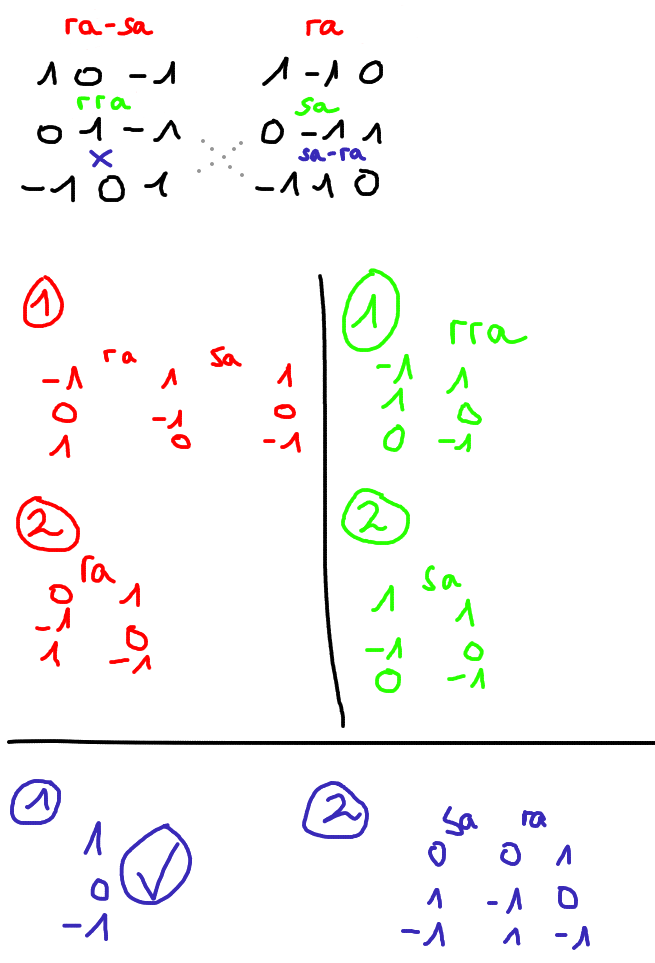 ra-sa ra
1 0 -1 1 -1 0
rra sa
0 1 -1 0 -1 1
x sa-ra
-1 0 1 -1 1 0
1
ra sa
-1 1 1
0 -1 0
1 0 -1
2
ra
0 1
-1 0
1 -1
1
rra
-1 1
1 0
0 -1
2
sa
1 1
-1 0
0 -1
1
1
0
-1
2
sa ra
0 0 1
1 -1 0
-1 1 -1